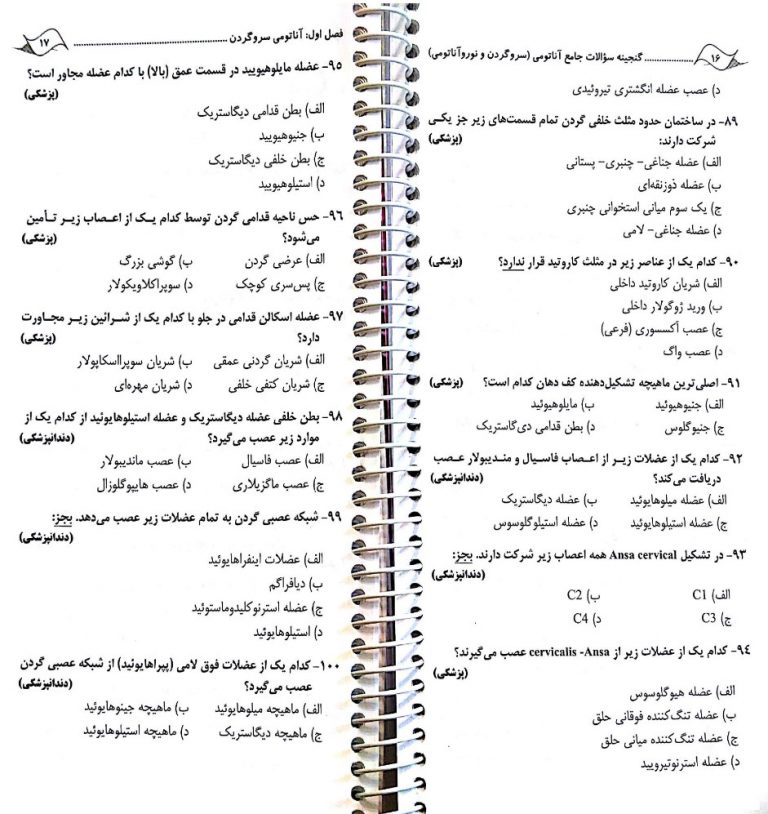 ۱۶ ............... گنجینه سؤالات جامع آناتومی (سروگردن و نوروآناتومی)
د) عصب عضله انگشتری تیروئیدی
۸۹- در ساختمان حدود مثلث خلفی گردن تمام قسمت‌های زیر جز یکی
شرکت دارند: (پزشکی)
الف) عضله جناغی- چنبری- پستانی
ب) عضله ذوزنقه‌ای
ج) یک سوم میانی استخوانی چنبری
د) عضله جناغی- لامی
۹۰- کدام یک از عناصر زیر در مثلث کاروتید قرار ندارد؟ (پزشکی)
الف) شریان کاروتید داخلی
ب) ورید ژوگولار داخلی
ج) عصب آکسسوری (فرعی)
د) عصب واگ
۹۱- اصلی‌ترین ماهیچه تشکیل‌دهنده کف دهان کدام است؟ (پزشکی)
الف) جنیوهیوئید ب) مایلوهیوئید
ج) جنیوگلوس د) بطن قدامی دی‌گاستریک
۹۲- کدام یک از عضلات زیـر از اعـصاب فاسیال و مندیبولار عـصب
دریافت می‌کند؟ (دندانپزشکی)
الف) عضله میلوهایوئید ب) عضله دیگاستریک
ج) عضله استیلوهایوئید د) عضله استیلوگلوسوس
۹۳- در تشکیل Ansa cervical همه اعصاب زیر شرکت دارند. بجز:
(دندانپزشکی)
الف) C1 ب) C2
ج) C3 د) C4
۹۴- کدام یک از عضلات زیر از cervicalis -Ansa عصب می‌گیرند؟
(پزشکی)
الف) عضله هیوگلوسوس
ب) عضله تنگ‌کننده فوقانی حلق
ج) عضله تنگ‌کننده میانی حلق
د) عضله استرنوتیرویید
فصل اول: آناتومی سروگردن ............... ۱۷
۹۵- عضله مایلوهیویید در قسمت عمق (بالا) با کدام عضله مجاور است؟
(پزشکی)
الف) بطن قدامی دیگاستریک
ب) جنیوهیویید
ج) بطن خلفی دیگاستریک
د) استیلوهیویید
۹۶- حس ناحیه قدامی گردن توسط کدام یـک از اعـصاب زیـر تـأمین
می‌شود؟ (پزشکی)
الف) عرضی گردن ب) گوشی بزرگ
ج) پس‌سری کوچک د) سوپراکلاویکولار
۹۷- عضله اسکالن قدامی در جلو با کدام یک از شـرائین زیـر مجـاورت
دارد؟ (پزشکی)
الف) شریان گردنی عمقی ب) شریان سوپرااسکاپولار
ج) شریان کتفی خلفی د) شریان مهره‌ای
۹۸- بطن خلفی عضله دیگاستریک و عضله استیلوهایوئید از کدام یک از
موارد زیر عصب می‌گیرد؟ (دندانپزشکی)
الف) عصب فاسیال ب) عصب ماندیبولار
ج) عصب ماگزیلاری د) عصب هایپوگلوزال
۹۹- شبکه عصبی گردن به تمام عضلات زیر عصب می‌دهد. بجز:
(دندانپزشکی)
الف) عضلات اینفراهایوئید
ب) دیافراگم
ج) عضله استرنوکلیدوماستوئید
د) استیلوهایوئید
۱۰۰- کدام یک از عضلات فوق لامی (پیراهایوئید) از شبکه عصبی گردن
عصب می‌گیرد؟ (دندانپزشکی)
الف) ماهیچه میلوهایوئید ب) ماهیچه جینوهایوئید
ج) ماهیچه دیگاستریک د) ماهیچه استیلوهایوئید